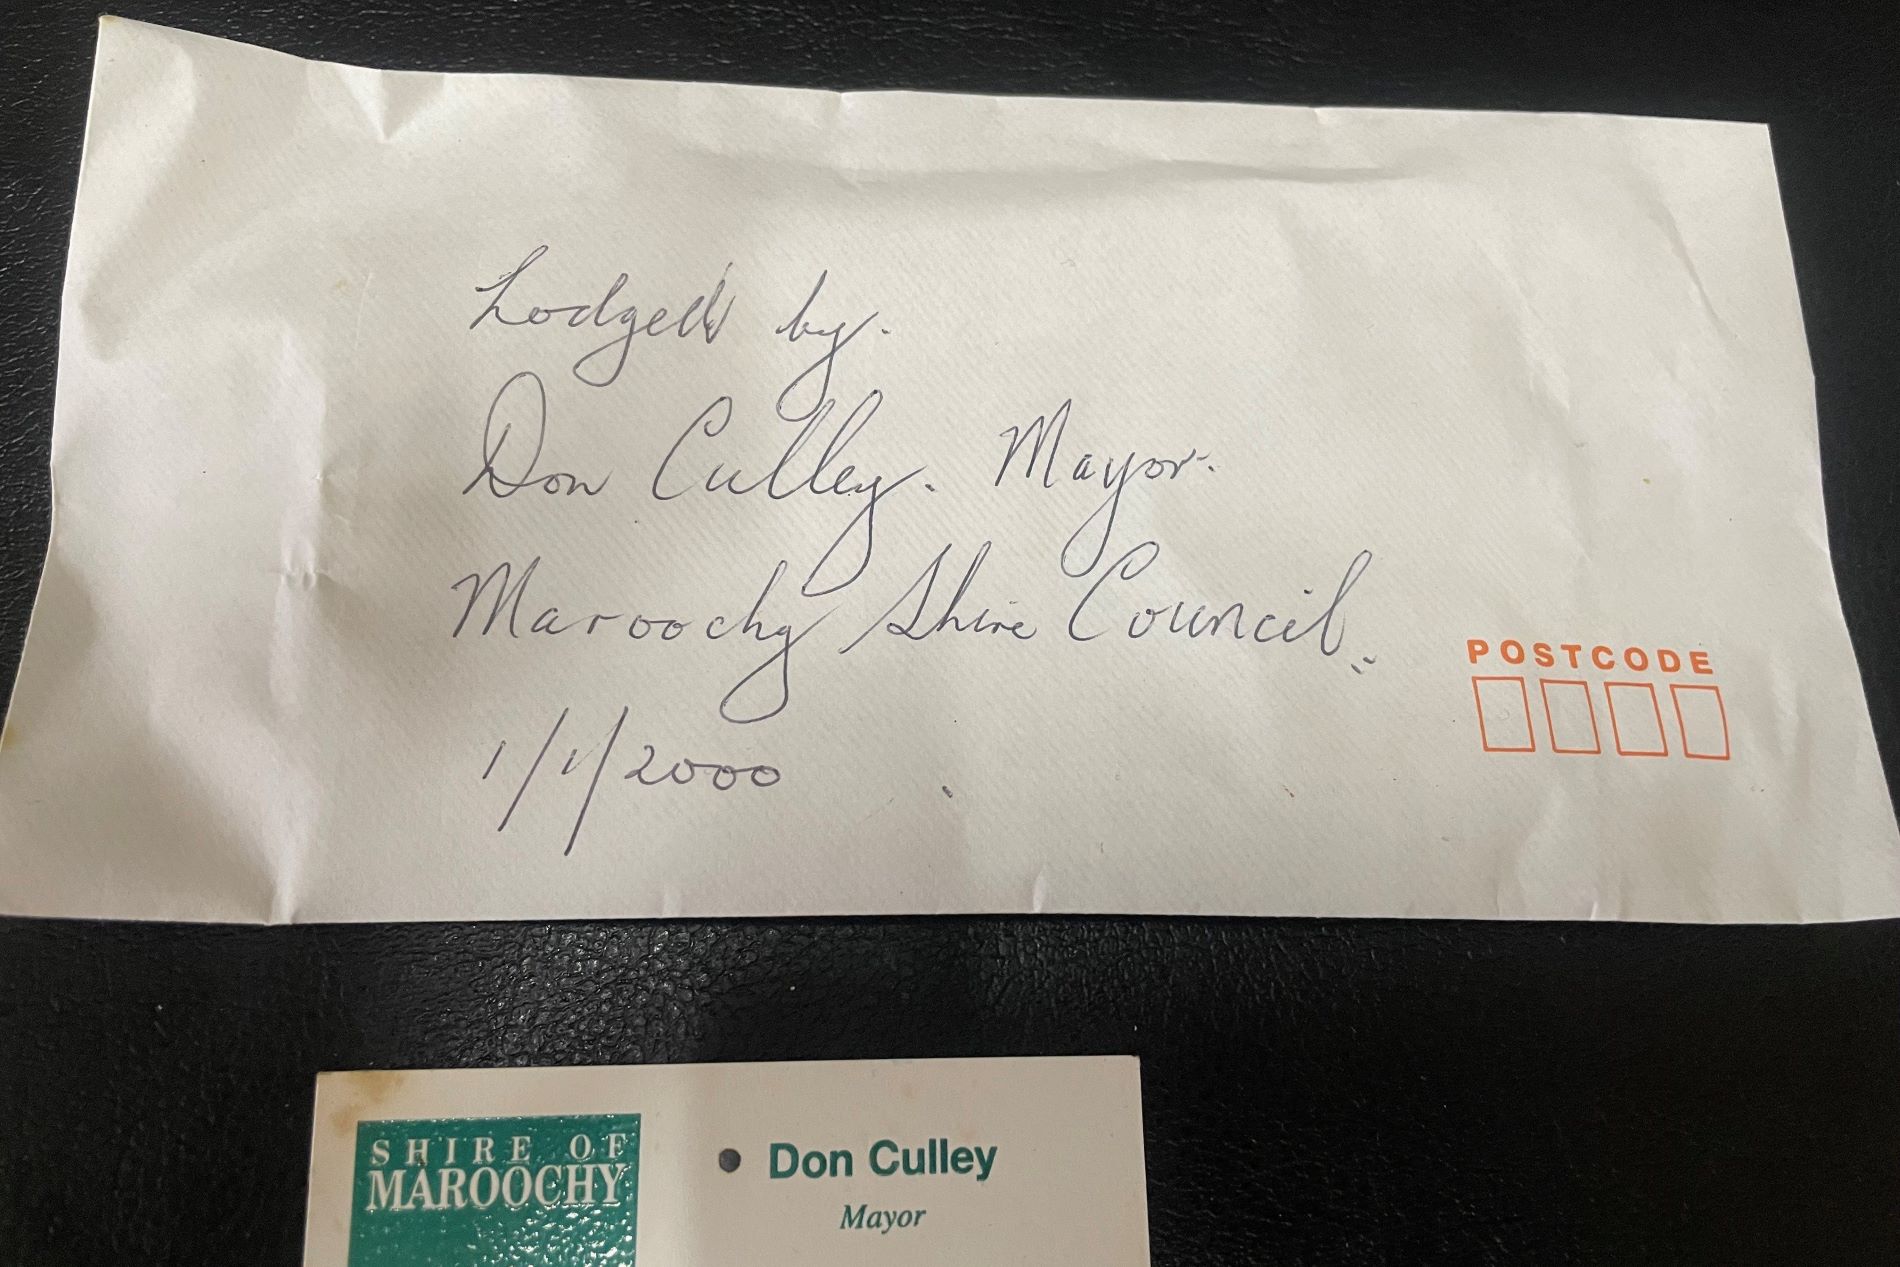 Lodged by.
Don Culley. Mayor.
Maroochy Shire Council.
1/1/2000
POSTCODE
SHIRE OF
MAROOCHY
Don Culley
Mayor